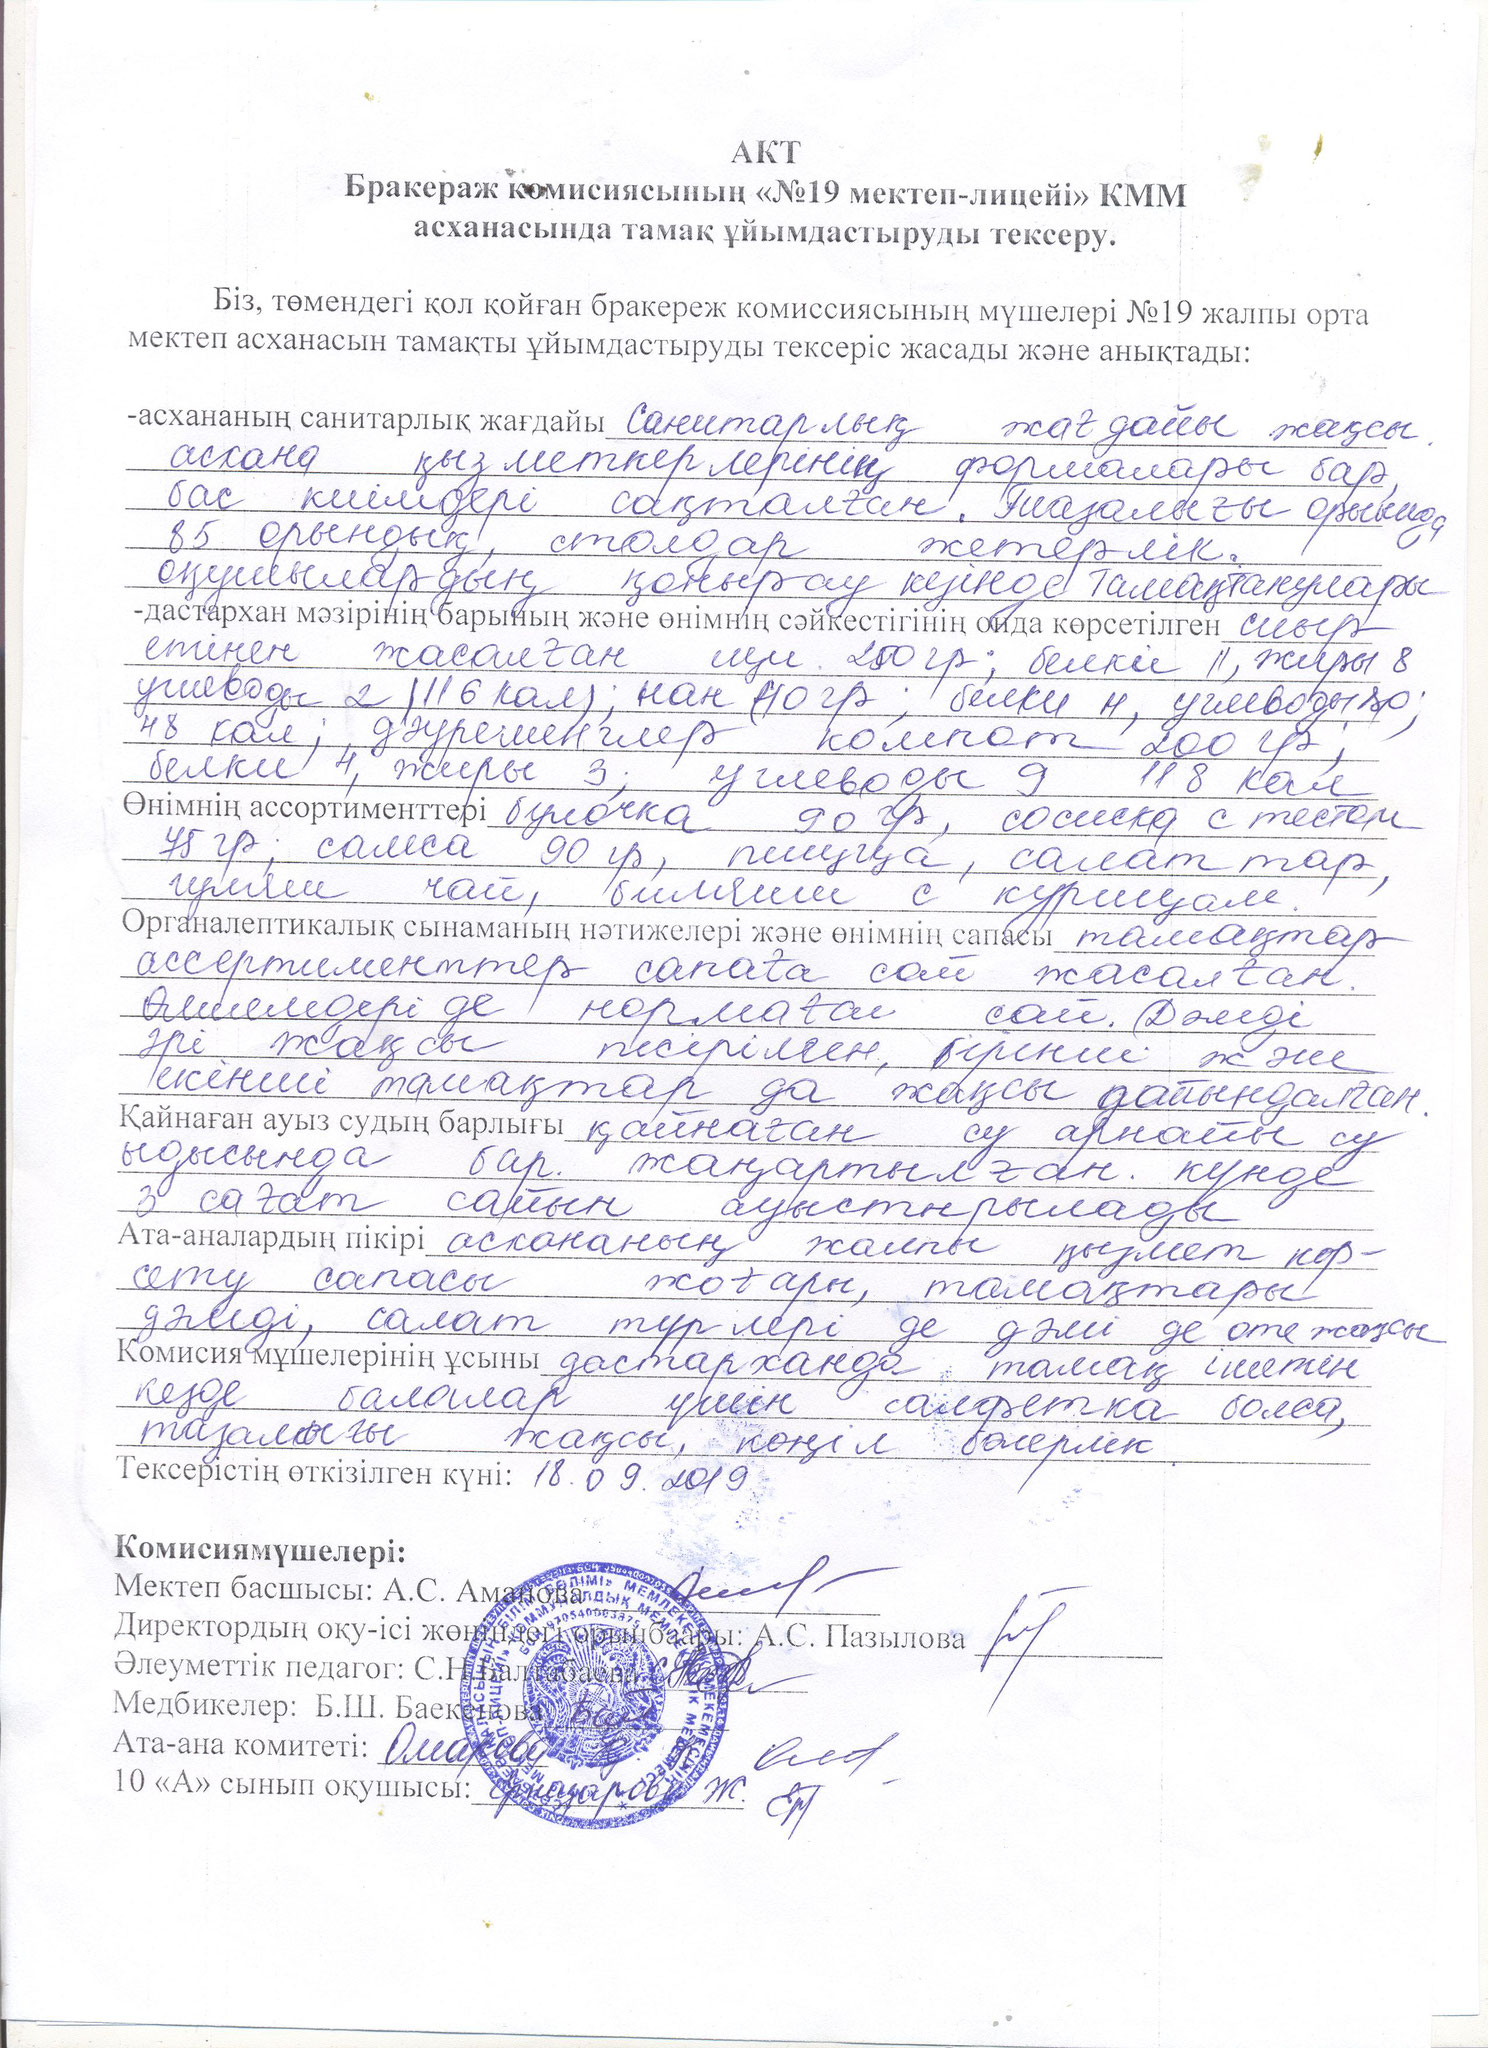 АКТ
Бракераж комисиясының «№19 мектеп-лицейі» КММ
асханасында тамақ ұйымдастыруды тексеру.
Біз, төмендегі қол қойған бракереж комиссиясының мүшелері №19 жалпы орта
мектеп асханасын тамақты ұйымдастыруды тексеріс жасады және анықтады:
-асхананың санитарлық жағдайы Санитарлық жағдайы жақсы.
асхана қызметкерлерінің формалары бар,
бас киімдері сақталған. Тазалығы орынында
85 орындық, столдар жетерлік.
оқушылардың қоңырау кезінде тамақтанулары
-дастархан мәзірінің барының және өнімнің сәйкестігінің онда көрсетілген сиыр
етінен жасалған щи 250гр; белки 11, жиры 8
углеводы 2 (116 кал); нан 40гр; белки 4, углеводы
48 кал; компот 200 гр;
белки 4, жиры 3; углеводы 9 118 кал
Өнімнің ассортименттері булочка 90 гр, сосиска с тестом
75 гр; самса 90 гр, пицца, салаттар,
чай, с курицам.
Органалептикалық сынаманың нәтижелері және өнімнің сапасы тамақтар
ассертименттер сапаға сай жасалған.
Өлшемдері де нормаға сай. Дәмді
әрі жақсы пісірілген, бірінші және
екінші тамақтар да жақсы дайындалған.
Қайнаған ауыз судың барлығы қайнаған су арнайы су
ыдысында бар. жаңартылған. күнде
3 сағат сайын ауыстырылады
Ата-аналардың пікірі асхананың жалпы қызмет көр-
сету сапасы жоғары, тамақтары
дәмді, салат түрлері де дәмі де өте жақсы
Комисия мұшелерінің ұсыны дастарханда тамақ ішетін
кезде балалар үшін салфетка болса,
тазалығы жақсы, көңіл бөлерлік.
Тексерістің өткізілген күні: 18.09.2019
Комисиямүшелері:
Мектеп басшысы: А.С. Аманова
Директордың оқу-ісі жөніндегі орынбаары: А.С. Пазылова
Әлеуметтік педагог: С.Н.Балтабаева
Медбикелер: Б.Ш. Баекенова
Ата-ана комитеті: Омарова
10 «А» сынып оқушысы: Ж.